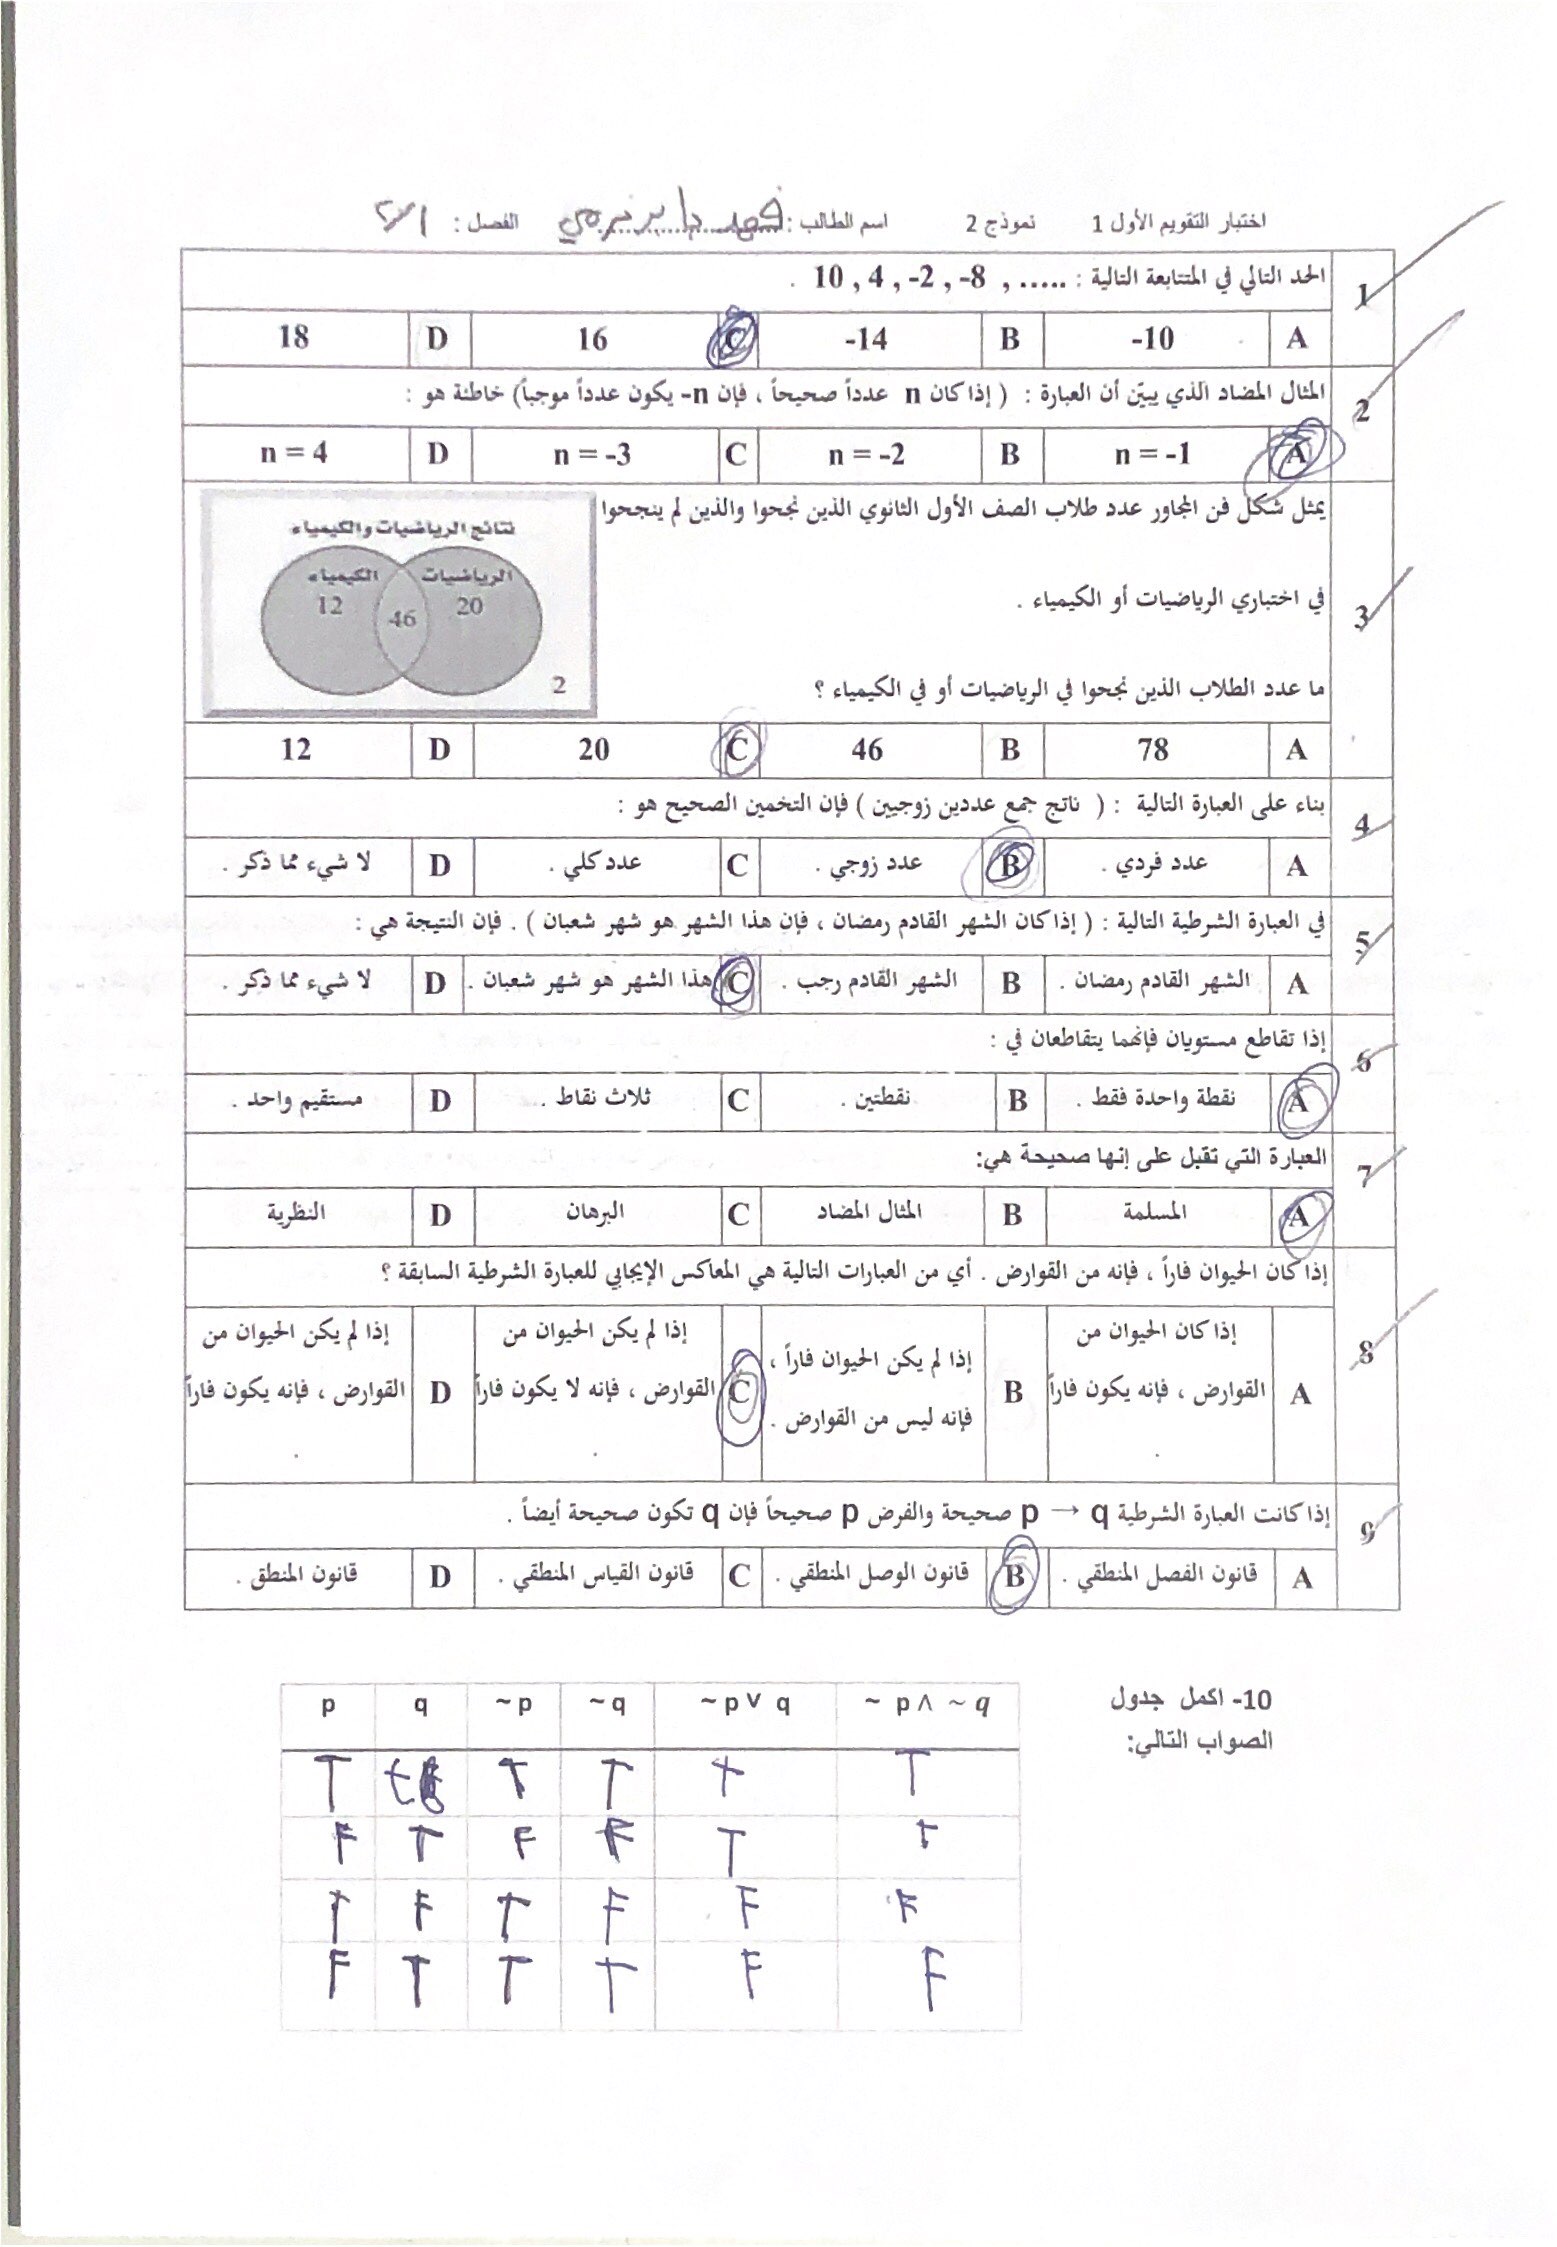 اختبار التقويم الأول 1 نموذج 2 اسم الطالب : فهد الفصل : 1/
1 الحد التالي في المتتابعة التالية : ..... , 8- , 2- , 4 , 10 .
A -10 B -14 C 16 D 18
2 المثال المضاد الذي يبيّن أن العبارة : ( إذا كان n عدداً صحيحاً ، فإن n- يكون عدداً موجباً) خاطئة هو :
A n = -1 B n = -2 C n = -3 D n = 4
3 يمثل شكل فن المجاور عدد طلاب الصف الأول الثانوي الذين نجحوا والذين لم ينجحوا
في اختباري الرياضيات أو الكيمياء .
ما عدد الطلاب الذين نجحوا في الرياضيات أو في الكيمياء ؟
نتائج الرياضيات والكيمياء
الرياضيات الكيمياء
20 46 12
2
A 78 B 46 C 20 D 12
4 بناء على العبارة التالية : ( ناتج جمع عددين زوجيين ) فإن التخمين الصحيح هو :
A عدد فردي . B عدد زوجي . C عدد كلي . D لا شيء مما ذكر .
5 في العبارة الشرطية التالية : ( إذا كان الشهر القادم رمضان ، فإن هذا الشهر هو شهر شعبان ) . فإن النتيجة هي :
A الشهر القادم رمضان . B الشهر القادم رجب . C هذا الشهر هو شهر شعبان . D لا شيء مما ذكر .
6 إذا تقاطع مستويان فإنهما يتقاطعان في :
A نقطة واحدة فقط . B نقطتين . C ثلاث نقاط . D مستقيم واحد .
7 العبارة التي تقبل على إنها صحيحة هي:
A المسلمة B المثال المضاد C البرهان D النظرية
8 إذا كان الحيوان فاراً ، فإنه من القوارض . أي من العبارات التالية هي المعاكس الإيجابي للعبارة الشرطية السابقة ؟
A إذا كان الحيوان من القوارض ، فإنه يكون فاراً .
B إذا لم يكن الحيوان فاراً ، فإنه ليس من القوارض .
C إذا لم يكن الحيوان من القوارض ، فإنه لا يكون فاراً .
D إذا لم يكن الحيوان من القوارض ، فإنه يكون فاراً .
9 إذا كانت العبارة الشرطية p → q صحيحة والفرض p صحيحاً فإن q تكون صحيحة أيضاً .
A قانون الفصل المنطقي . B قانون الوصل المنطقي . C قانون القياس المنطقي . D قانون المنطق .
10- اكمل جدول
الصواب التالي:
p q ~p ~q ~p ∨ q ~ p ∧ ~ q
T t T T T T
F T F F T T
T F T F F F
F T T T F F